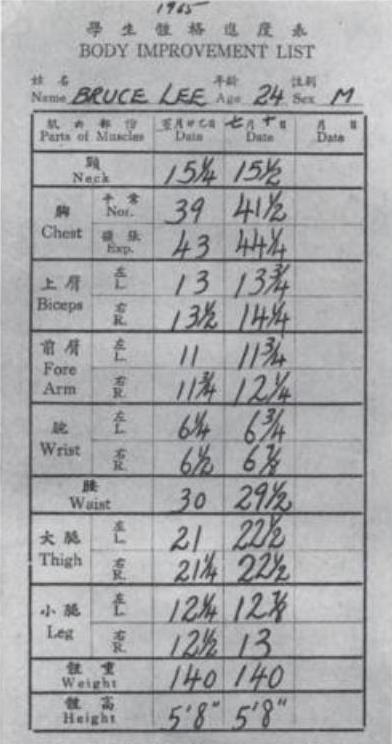 1965
學生體格進度表
BODY IMPROVEMENT LIST
姓名 年齡 性別
Name BRUCE LEE Age 24 Sex M
肌肉部份 五月廿七日 七月十日 月 日
Parts of Muscles Date Date Date
頸
Neck 15¼ 15½
胸 平常
Chest Nor. 39 41½
擴張
Exp. 43 44¼
上臂 左
Biceps L. 13 13¾
右
R. 13½ 14¼
前臂 左
Fore L. 11 11¾
Arm 右
R. 11¾ 12¼
腕 左
Wrist L. 6¼ 6¾
右
R. 6½ 6⅞
腰
Waist 30 29½
大腿 左
Thigh L. 21 22½
右
R. 21¼ 22½
小腿 左
Leg L. 12¼ 12⅞
右
R. 12½ 13
體重
Weight 140 140
體高
Height 5'8" 5'8"